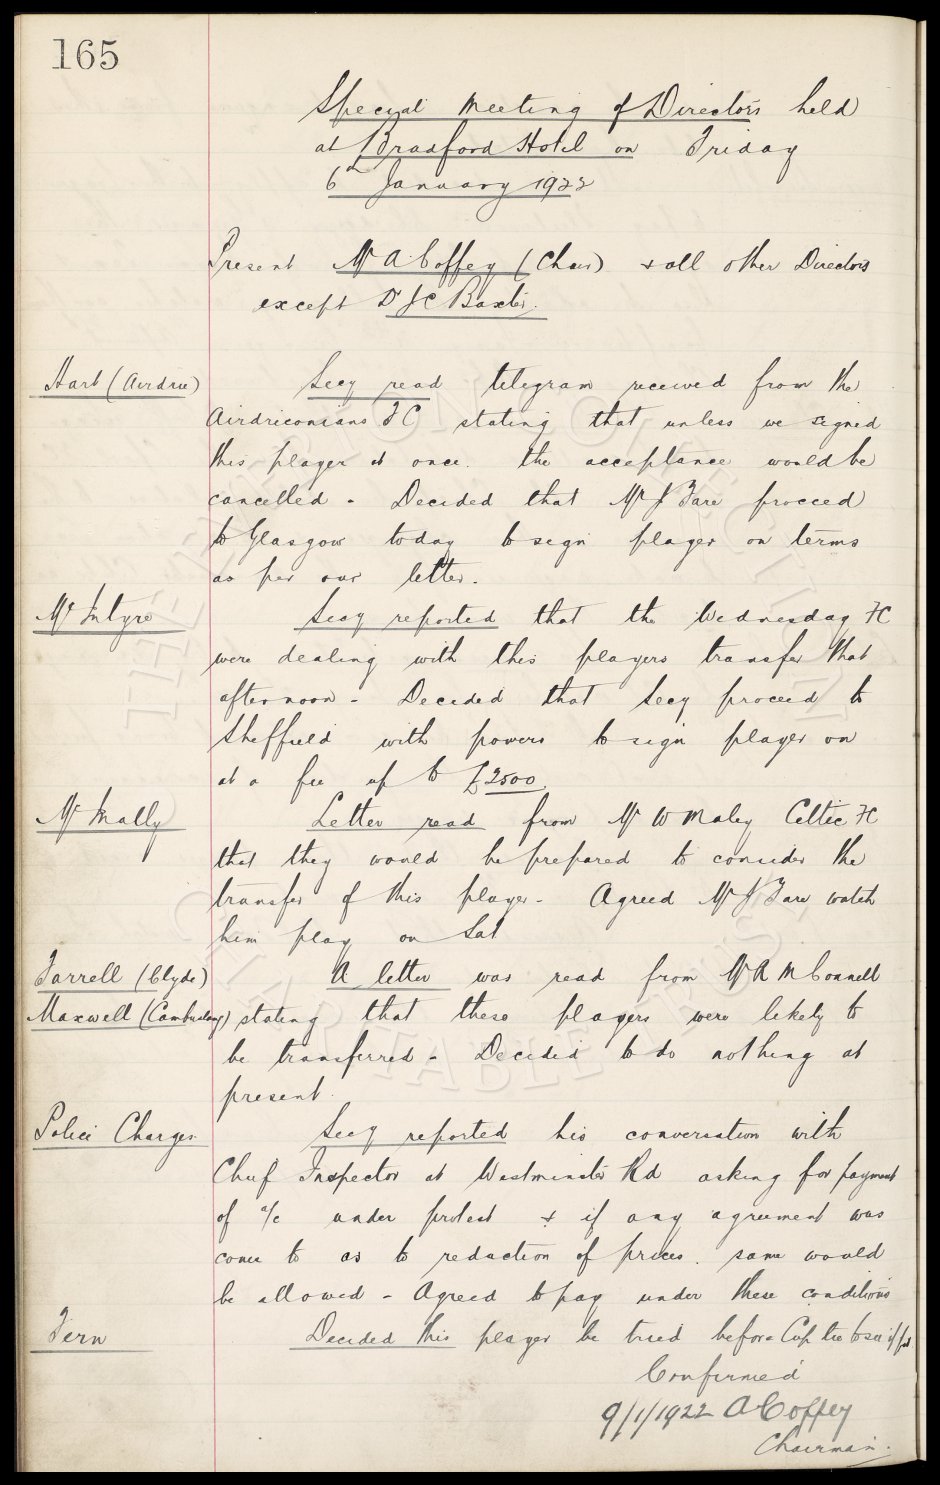 165
Special Meeting of Directors held
at Bradford Hotel on Friday
6th January 1922
Present Mr A. Coffey (Chair) & all other Directors
except Dr J C Baxter.
Hart (Airdrie) Secy read telegram received from the
Airdrieonians F C stating that unless we signed
this player at once. the acceptance would be
cancelled - Decided that Mr J Fare proceed
to Glasgow today to sign player on terms
as per our letter.
McIntyre Secy reported that the Wednesday FC
were dealing with this players transfer that
afternoon - Decided that Secy proceed to
Sheffield with powers to sign player on
at a fee up to £2500.
McInally Letter read from Mr W Maley Celtic FC
that they would be prepared to consider the
transfer of this player - Agreed Mr J Fare watch
him play on Sat
Farrell (Clyde) A letter was read from Mr R McConnell
Maxwell (Cambuslang) stating that these players were likely to
be transferred - Decided to do nothing at
present.
Police Charges Secy reported his conversation with
Chief Inspector at Westminster Rd asking for payment
of a/c under protest & if any agreement was
come to as to reduction of prices. same would
be allowed - Agreed to pay under these conditions
Fern Decided this player be tried before Cup tie to see if fit
Confirmed
9/1/1922 A Coffey
Chairman.
THE EVERTON COLLECTION
CHARITABLE TRUST